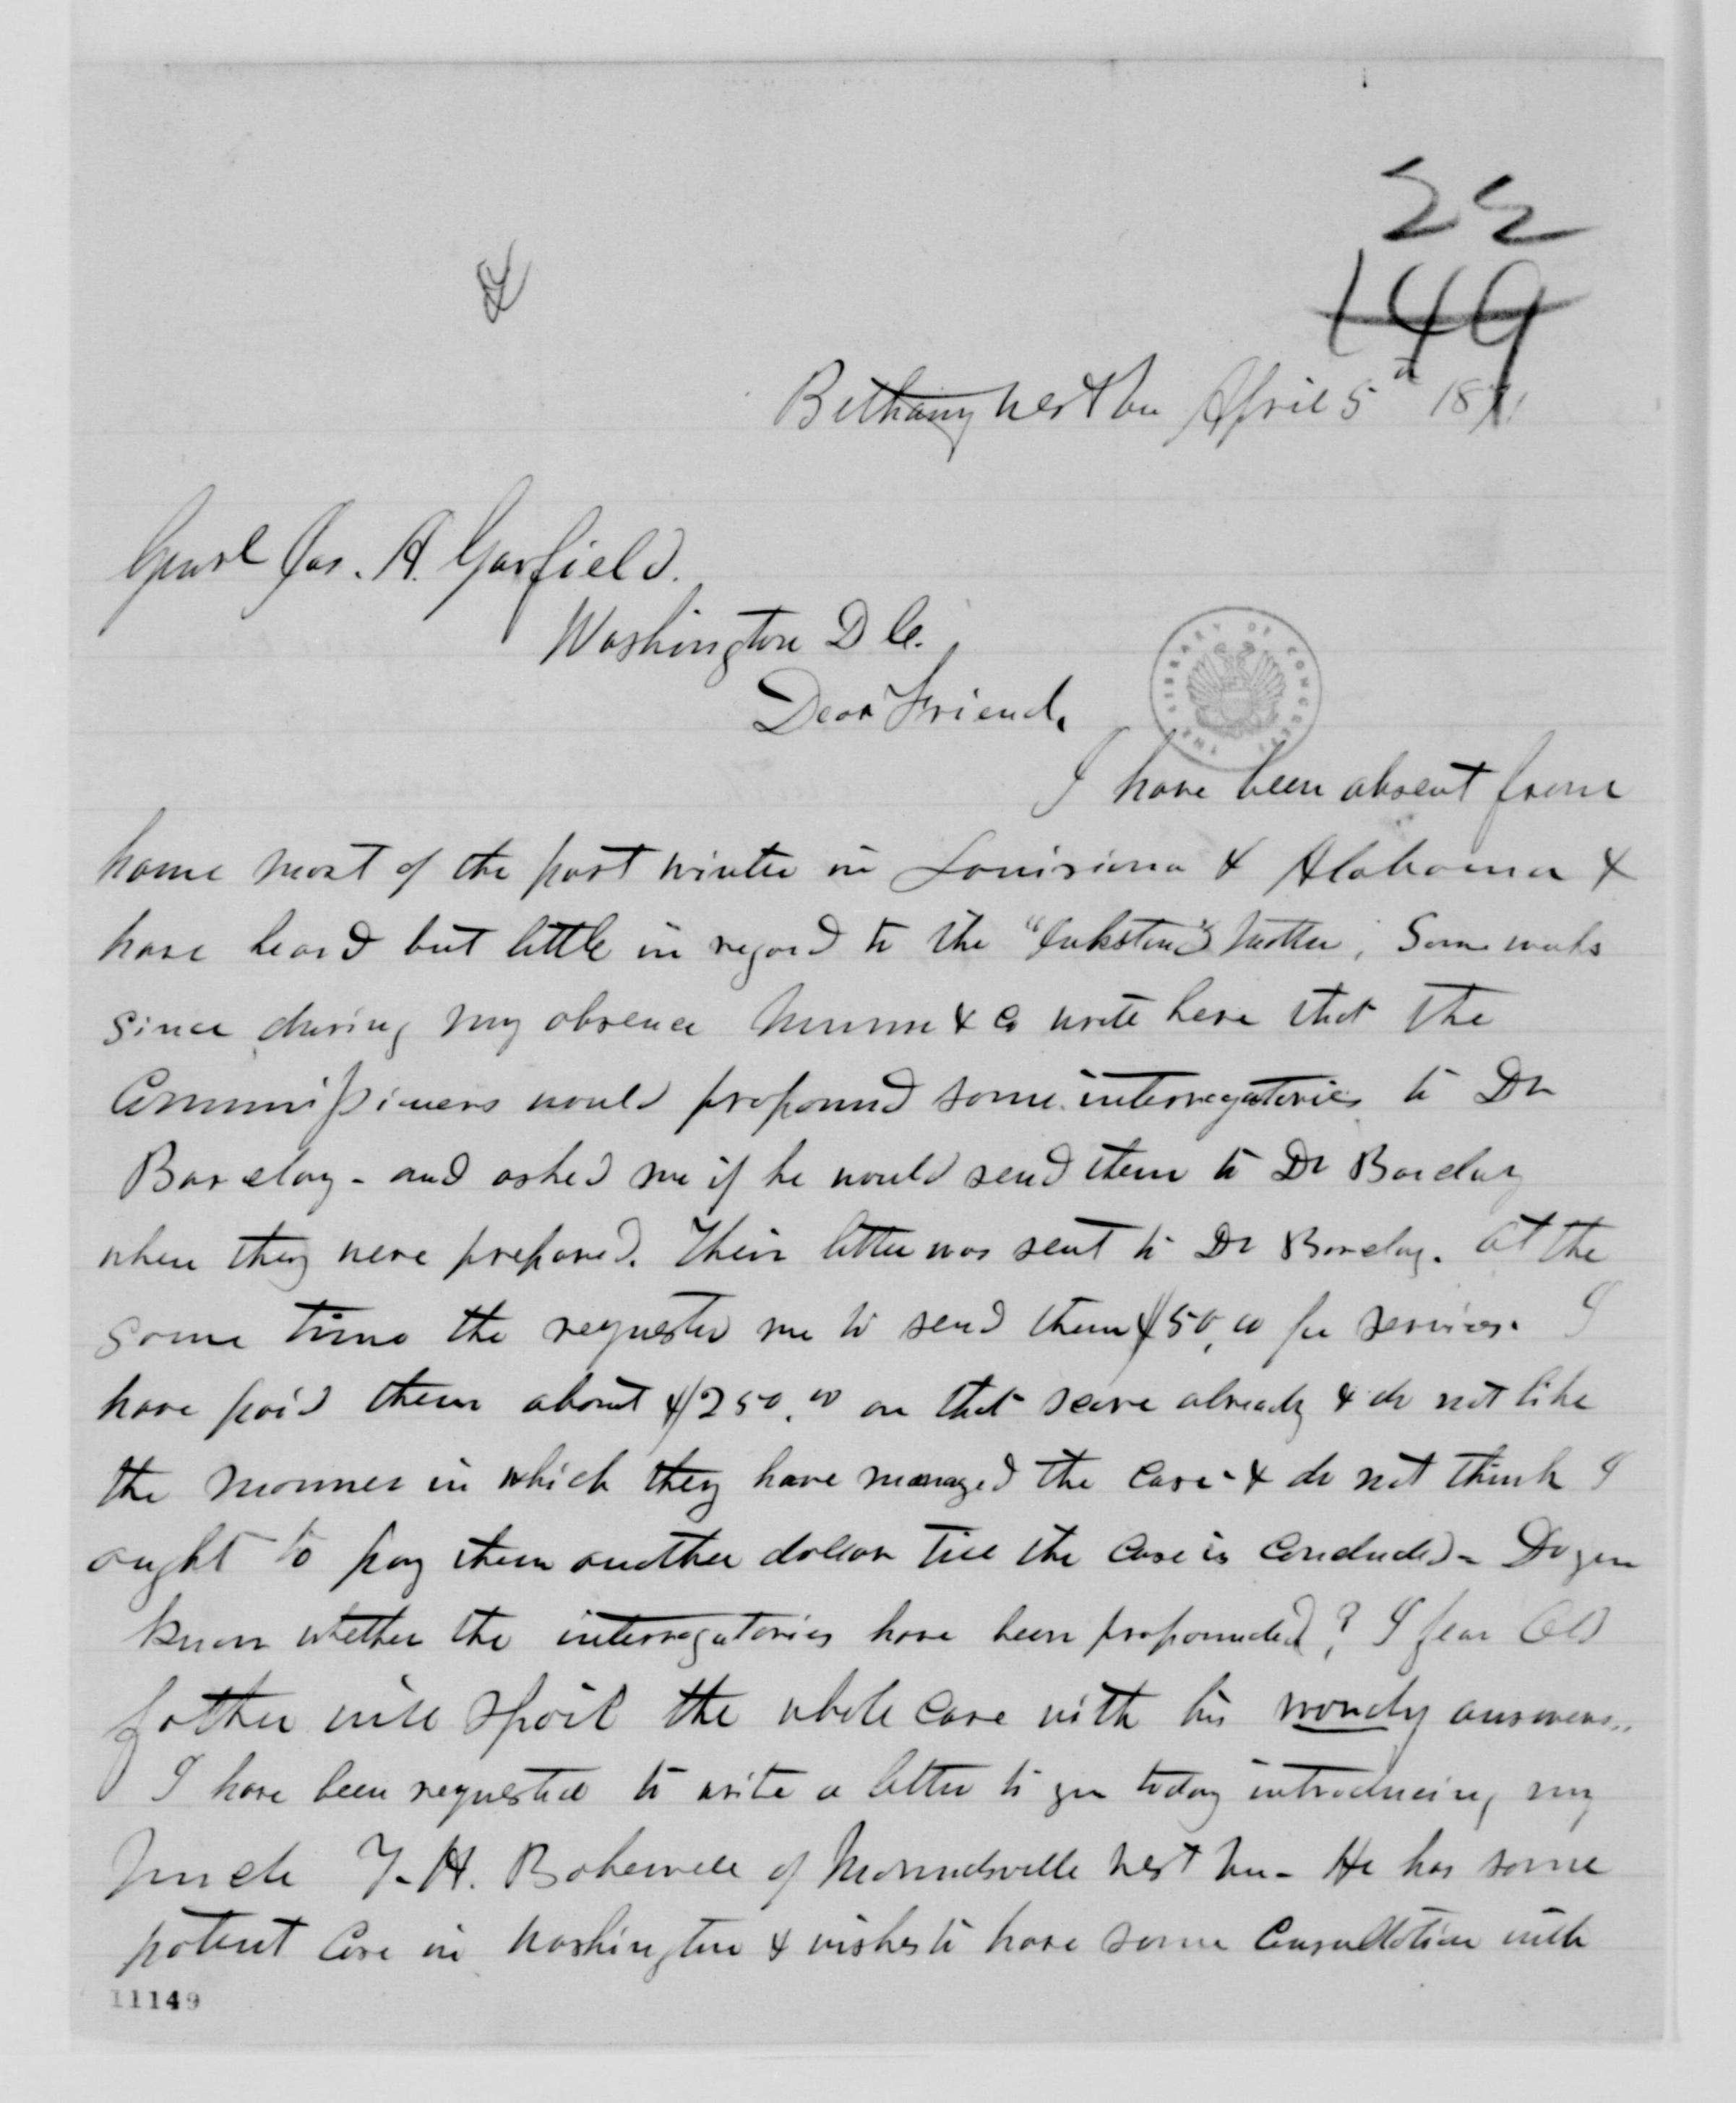 22
149
Bethany West Va April 5th 1871
Genrl Jas. A. Garfield.
Washington D C.
Dear Friend,
THE LIBRARY OF CONGRESS
I have been absent from
home most of the past winter in Louisiana & Alabama &
have heard but little in regard to the "Inkstand" matter. Some weeks
since during my absence Munn & Co wrote here that the
Commissioners would propound some interrogatories to Dr
Barclay - and asked me if he would send them to Dr Barclay
when they were prepared. Their letter was sent to Dr Barclay. At the
same time the requested me to send them $50,00 for services. I
have paid them about $250.00 on that score already & do not like
the manner in which they have managed the case - & do not think I
ought to pay them another dollar till the case is concluded - Do you
know whether the interrogatories have been propounded? I fear Old
father will spoil the whole case with his wordy answers..
I have been requested to write a letter to you today introducing my
Uncle H. Bakewell of Moundsville West Va - He has some
patent case in Washington & wishes to have some Consultation with
11149